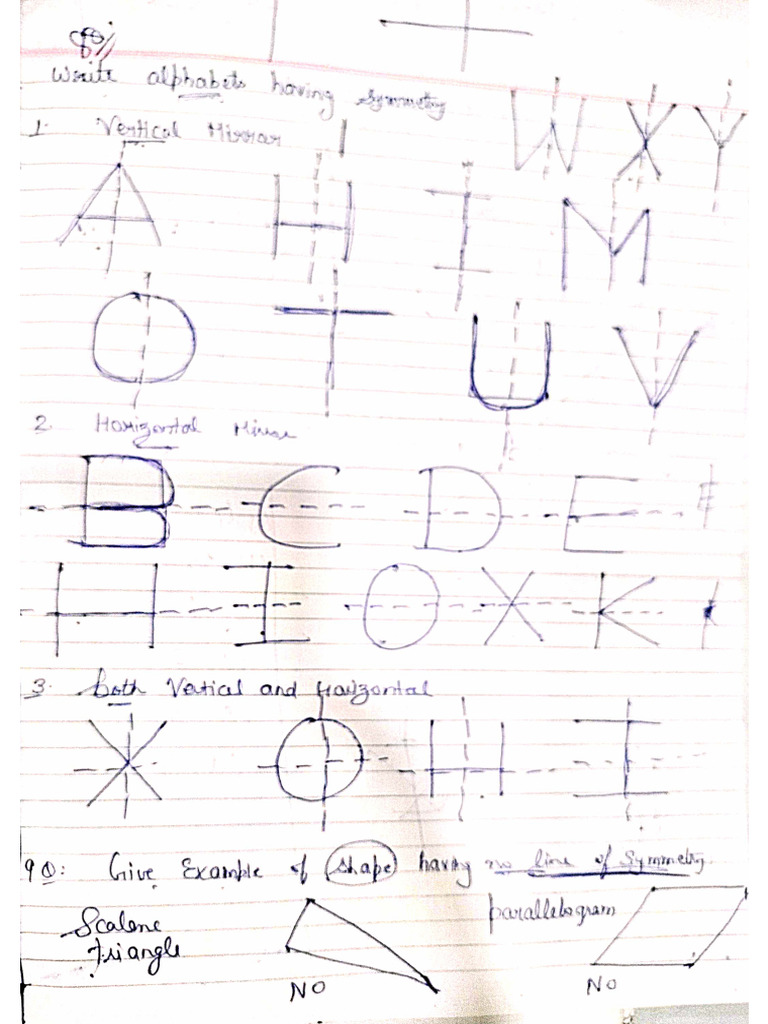 8Q:
Write alphabets having symmetry
1. Vertical Mirrar
W X Y
A H I M
O T U V
2. Horizontal Mirror
B C D E
H I O X K
3. both Vertical and Horizontal
X O H I
9Q: Give Example of shape having no line of Symmetry.
Scalene parallelogram
Triangle
NO NO